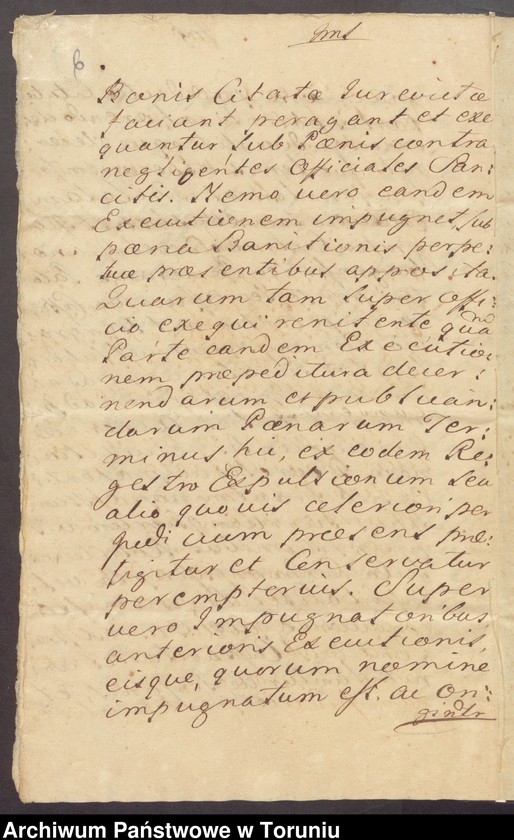 6
Bonis Citatæ Jurevictæ
faciant peragant et exe
quantur sub Pœnis contra
negligentes Officiales San:
citis. Nemo vero eandem
Executionem impugnet sub
pœna Banitionis perpe:
tuæ præsentibus apposita.
Quarum tam super Offi:
cio exequi renitente quã
Parte eandem Executio:
nem præpeditura decer:
nendarum et publican:
darum Pœnarum Ter:
minus hic, ex eodem Re:
gestro Expulsionum seu
alio quovis celeriori per
Judicium præsens præ:
figitur et Conservatur
peremptorius. Super
vero Impugnatoribus
anterioris Executionis,
eisque, quorum nomine
impugnatum est. ac
Archiwum Państwowe w Toruniu